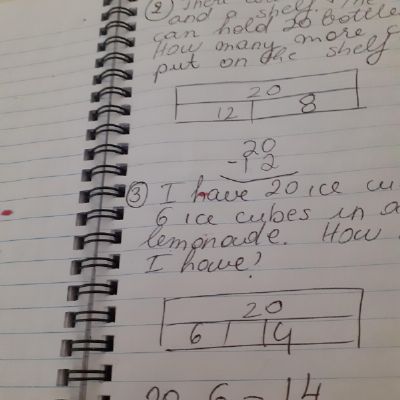 ② There
and a shelf. The
can hold 20 bottles
How many more
put on the shelf
20
12 8
20
-12
③ I have 20 ice cu
6 ice cubes in a
lemonade. How
I have?
20
6 14
20 6 = 14